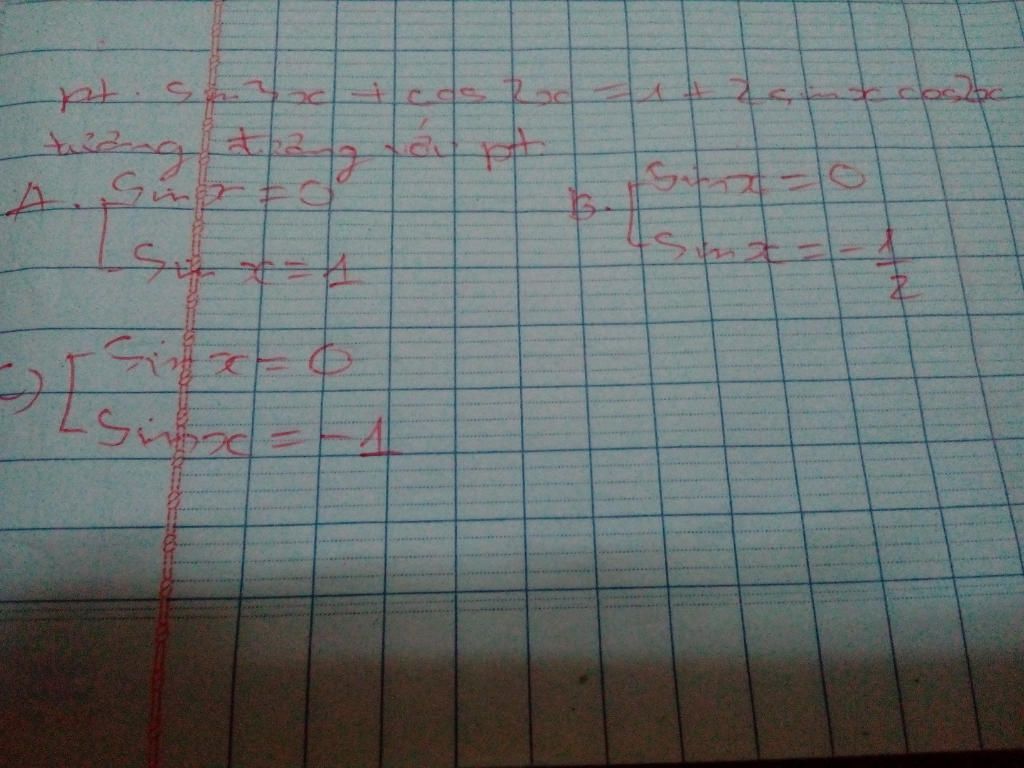 pt. sin3x + cos2x = 1 + 2sinxcos2x
tương đương với pt.
A. [ Sinx = 0 B. [ Sinx = 0
Sin x = 1 Sinx = -1/2
C) [ Sin x = 0
Sinx = -1